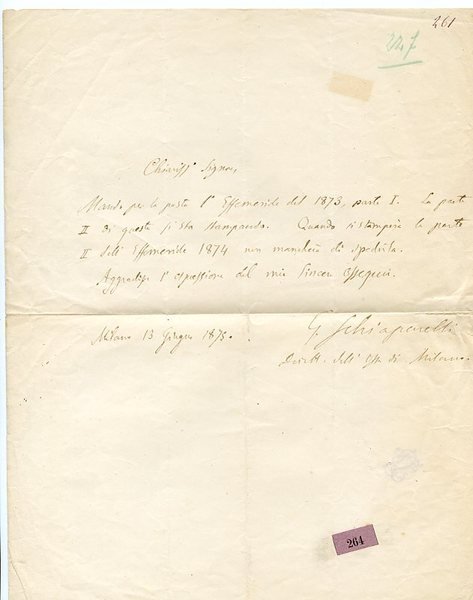 261
227
Chiariss. Signore,
Mando per la posta l' Effemeride del 1873, parte I. La parte
II di questa si sta stampando. Quando si stamperà la parte
II dell' Effemeride 1874 non mancherò di spedirla.
Aggradisca l' espressione del mio sincero ossequio.
Milano 13 Giugno 1875.
G Schiaparelli
Dirett. dell' Oss. di Milano
264